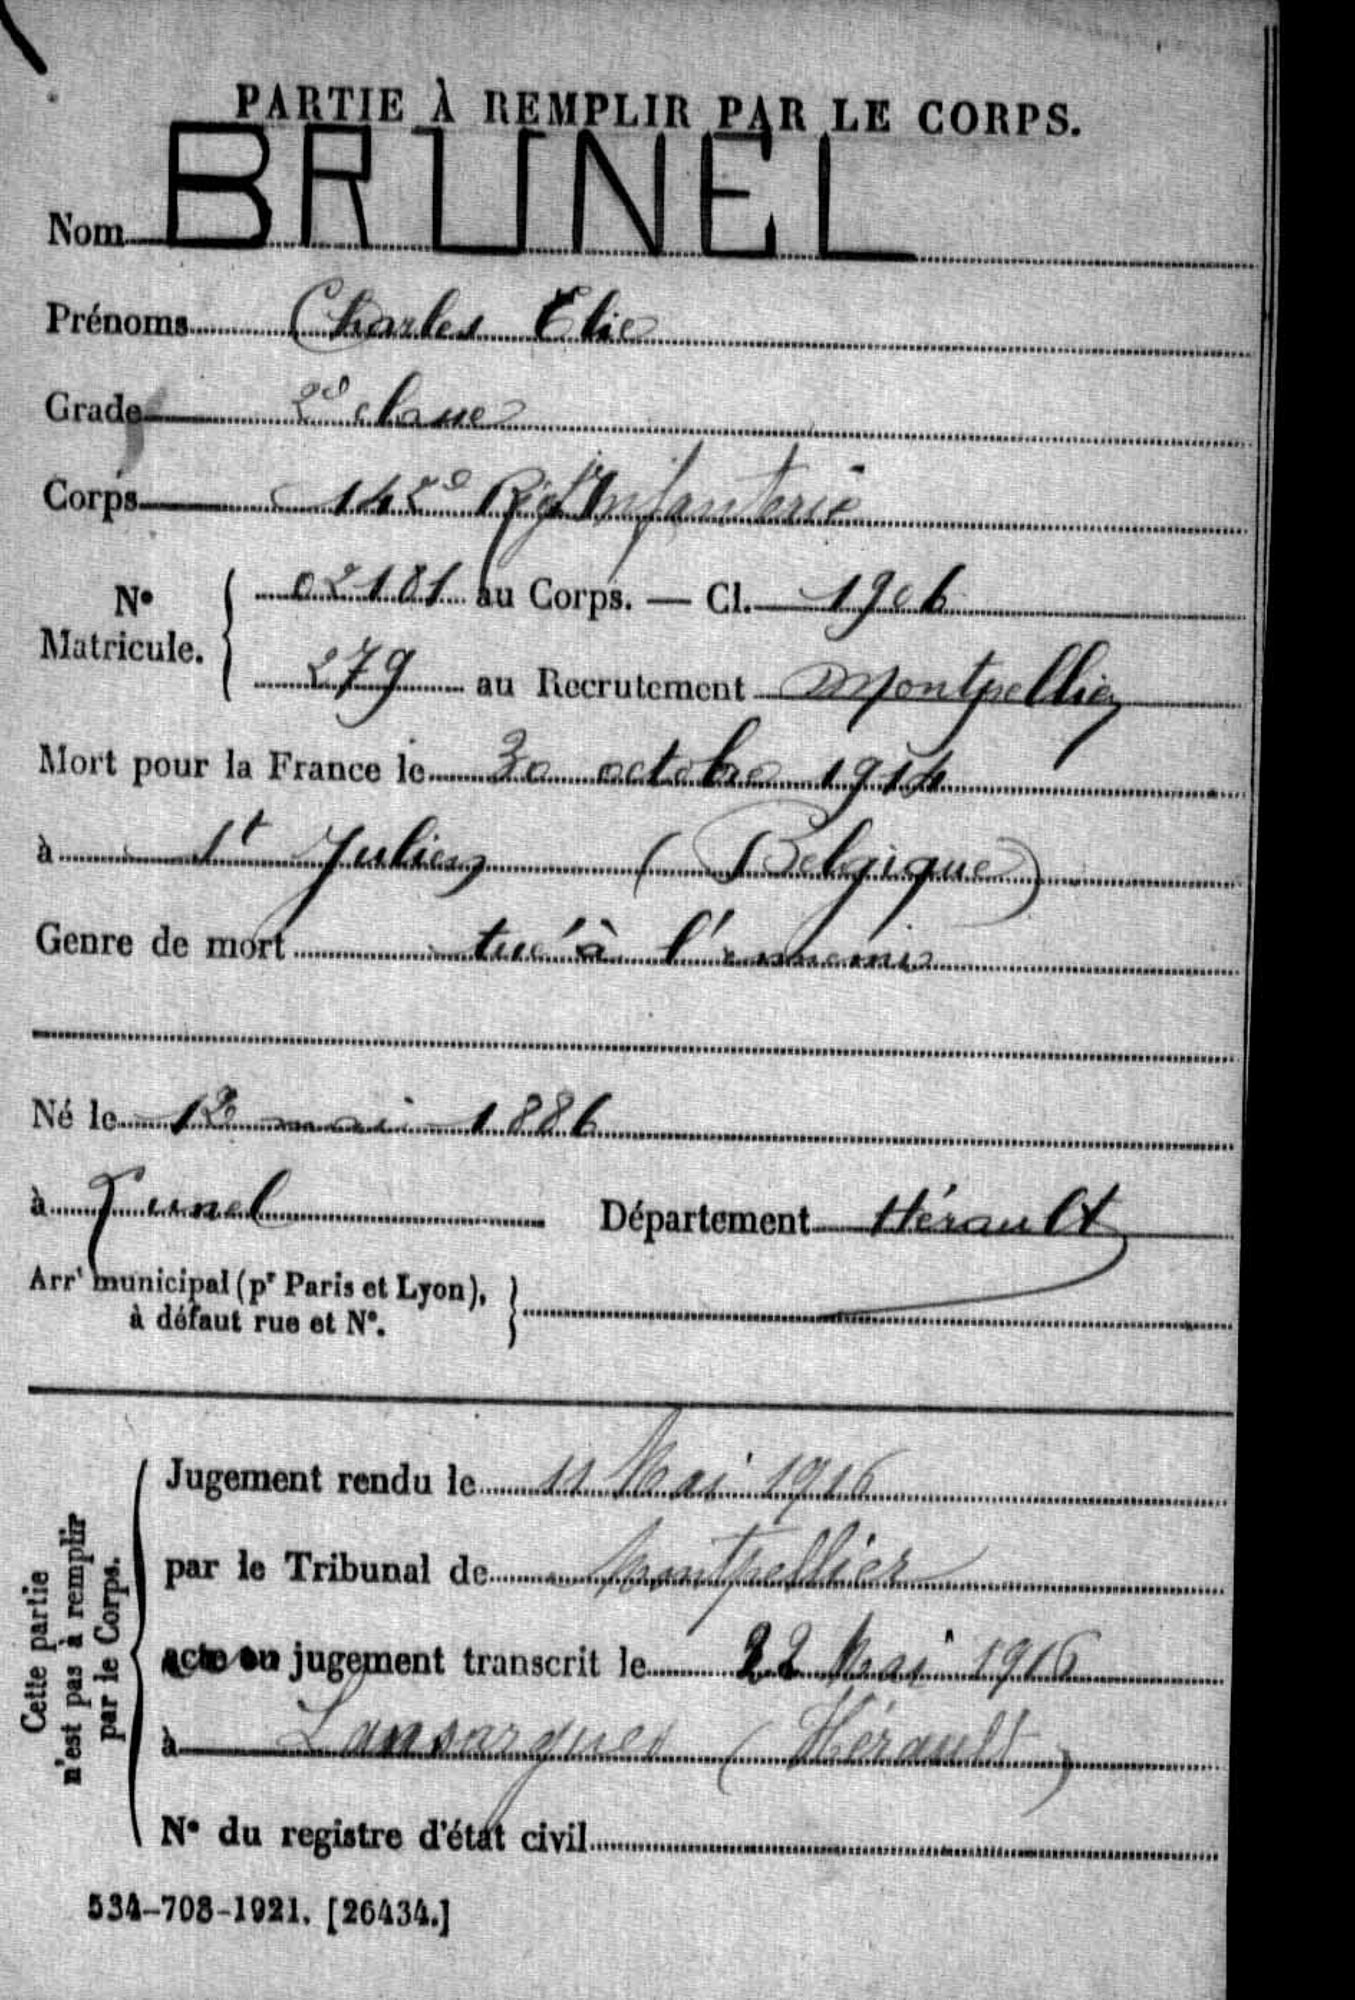 PARTIE À REMPLIR PAR LE CORPS.
Nom BRUNEL
Prénoms Charles Elie
Grade 2e classe
Corps 142e Régt d'Infanterie
No Matricule. { 02181 au Corps. — Cl. 1906
279 au Recrutement Montpellier
Mort pour la France le 30 octobre 1914
à St Julien (Belgique)
Genre de mort tué à l'ennemi
Né le 12 mai 1886
à Lunel Département Hérault
Arrt municipal (pr Paris et Lyon), }
à défaut rue et No.
Cette partie
n'est pas à remplir
par le Corps.
Jugement rendu le 11 Mai 1916
par le Tribunal de Montpellier
acte ou jugement transcrit le 22 Mai 1916
à Lansargues (Hérault)
No du registre d'état civil
534-708-1921. [26434.]